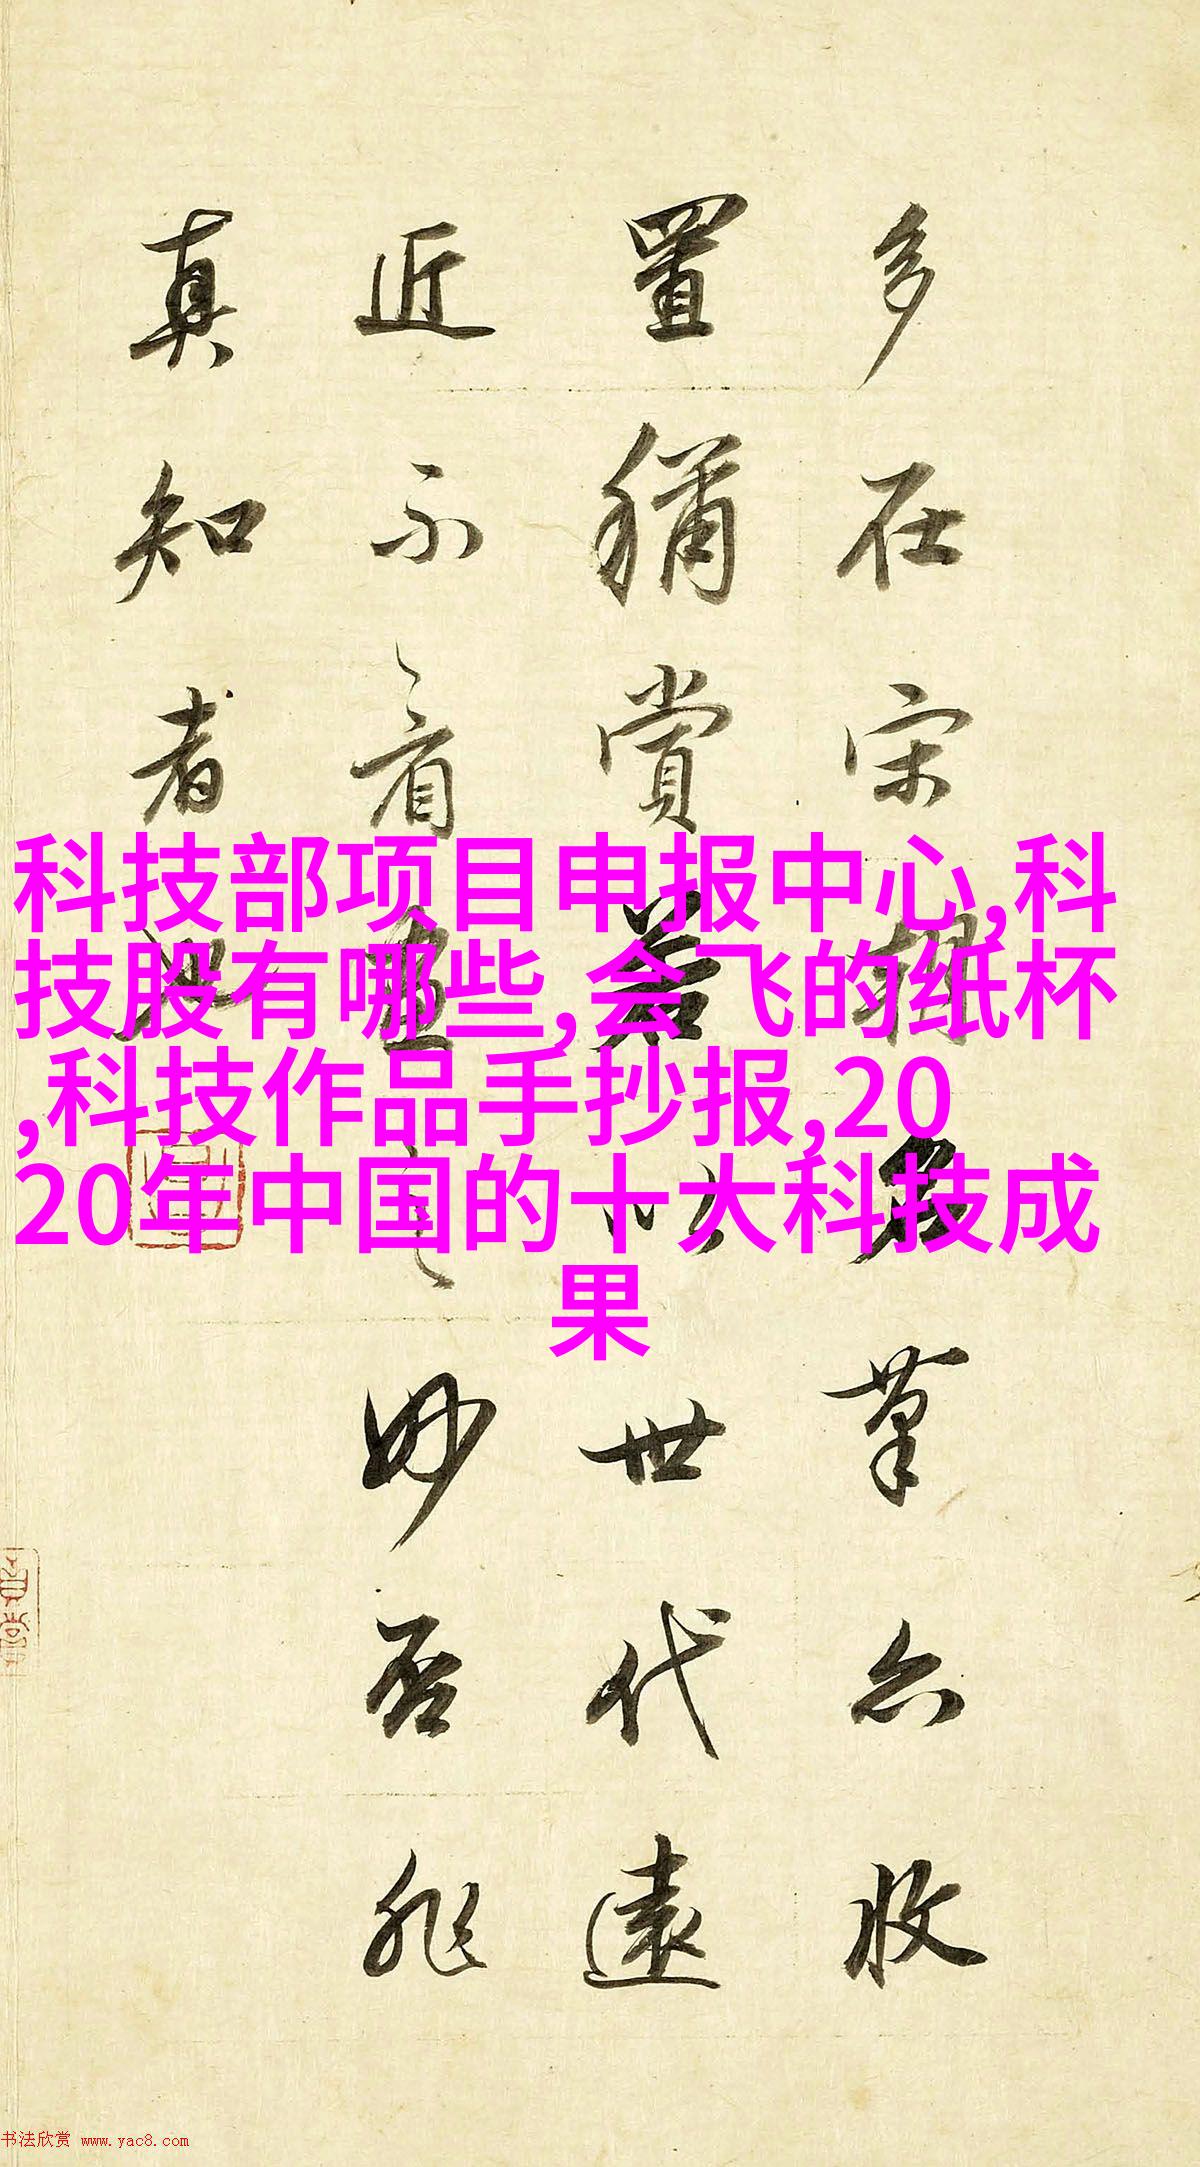 多在宋名筆亦收
置稱賞若以世代遠
近不看畫之妙否非
真知者也
科技部项目申报中心,科
技股有哪些,会飞的纸杯
,科技作品手抄报,20
20年中国的十大科技成
果
书法欣赏 www.yac8.com